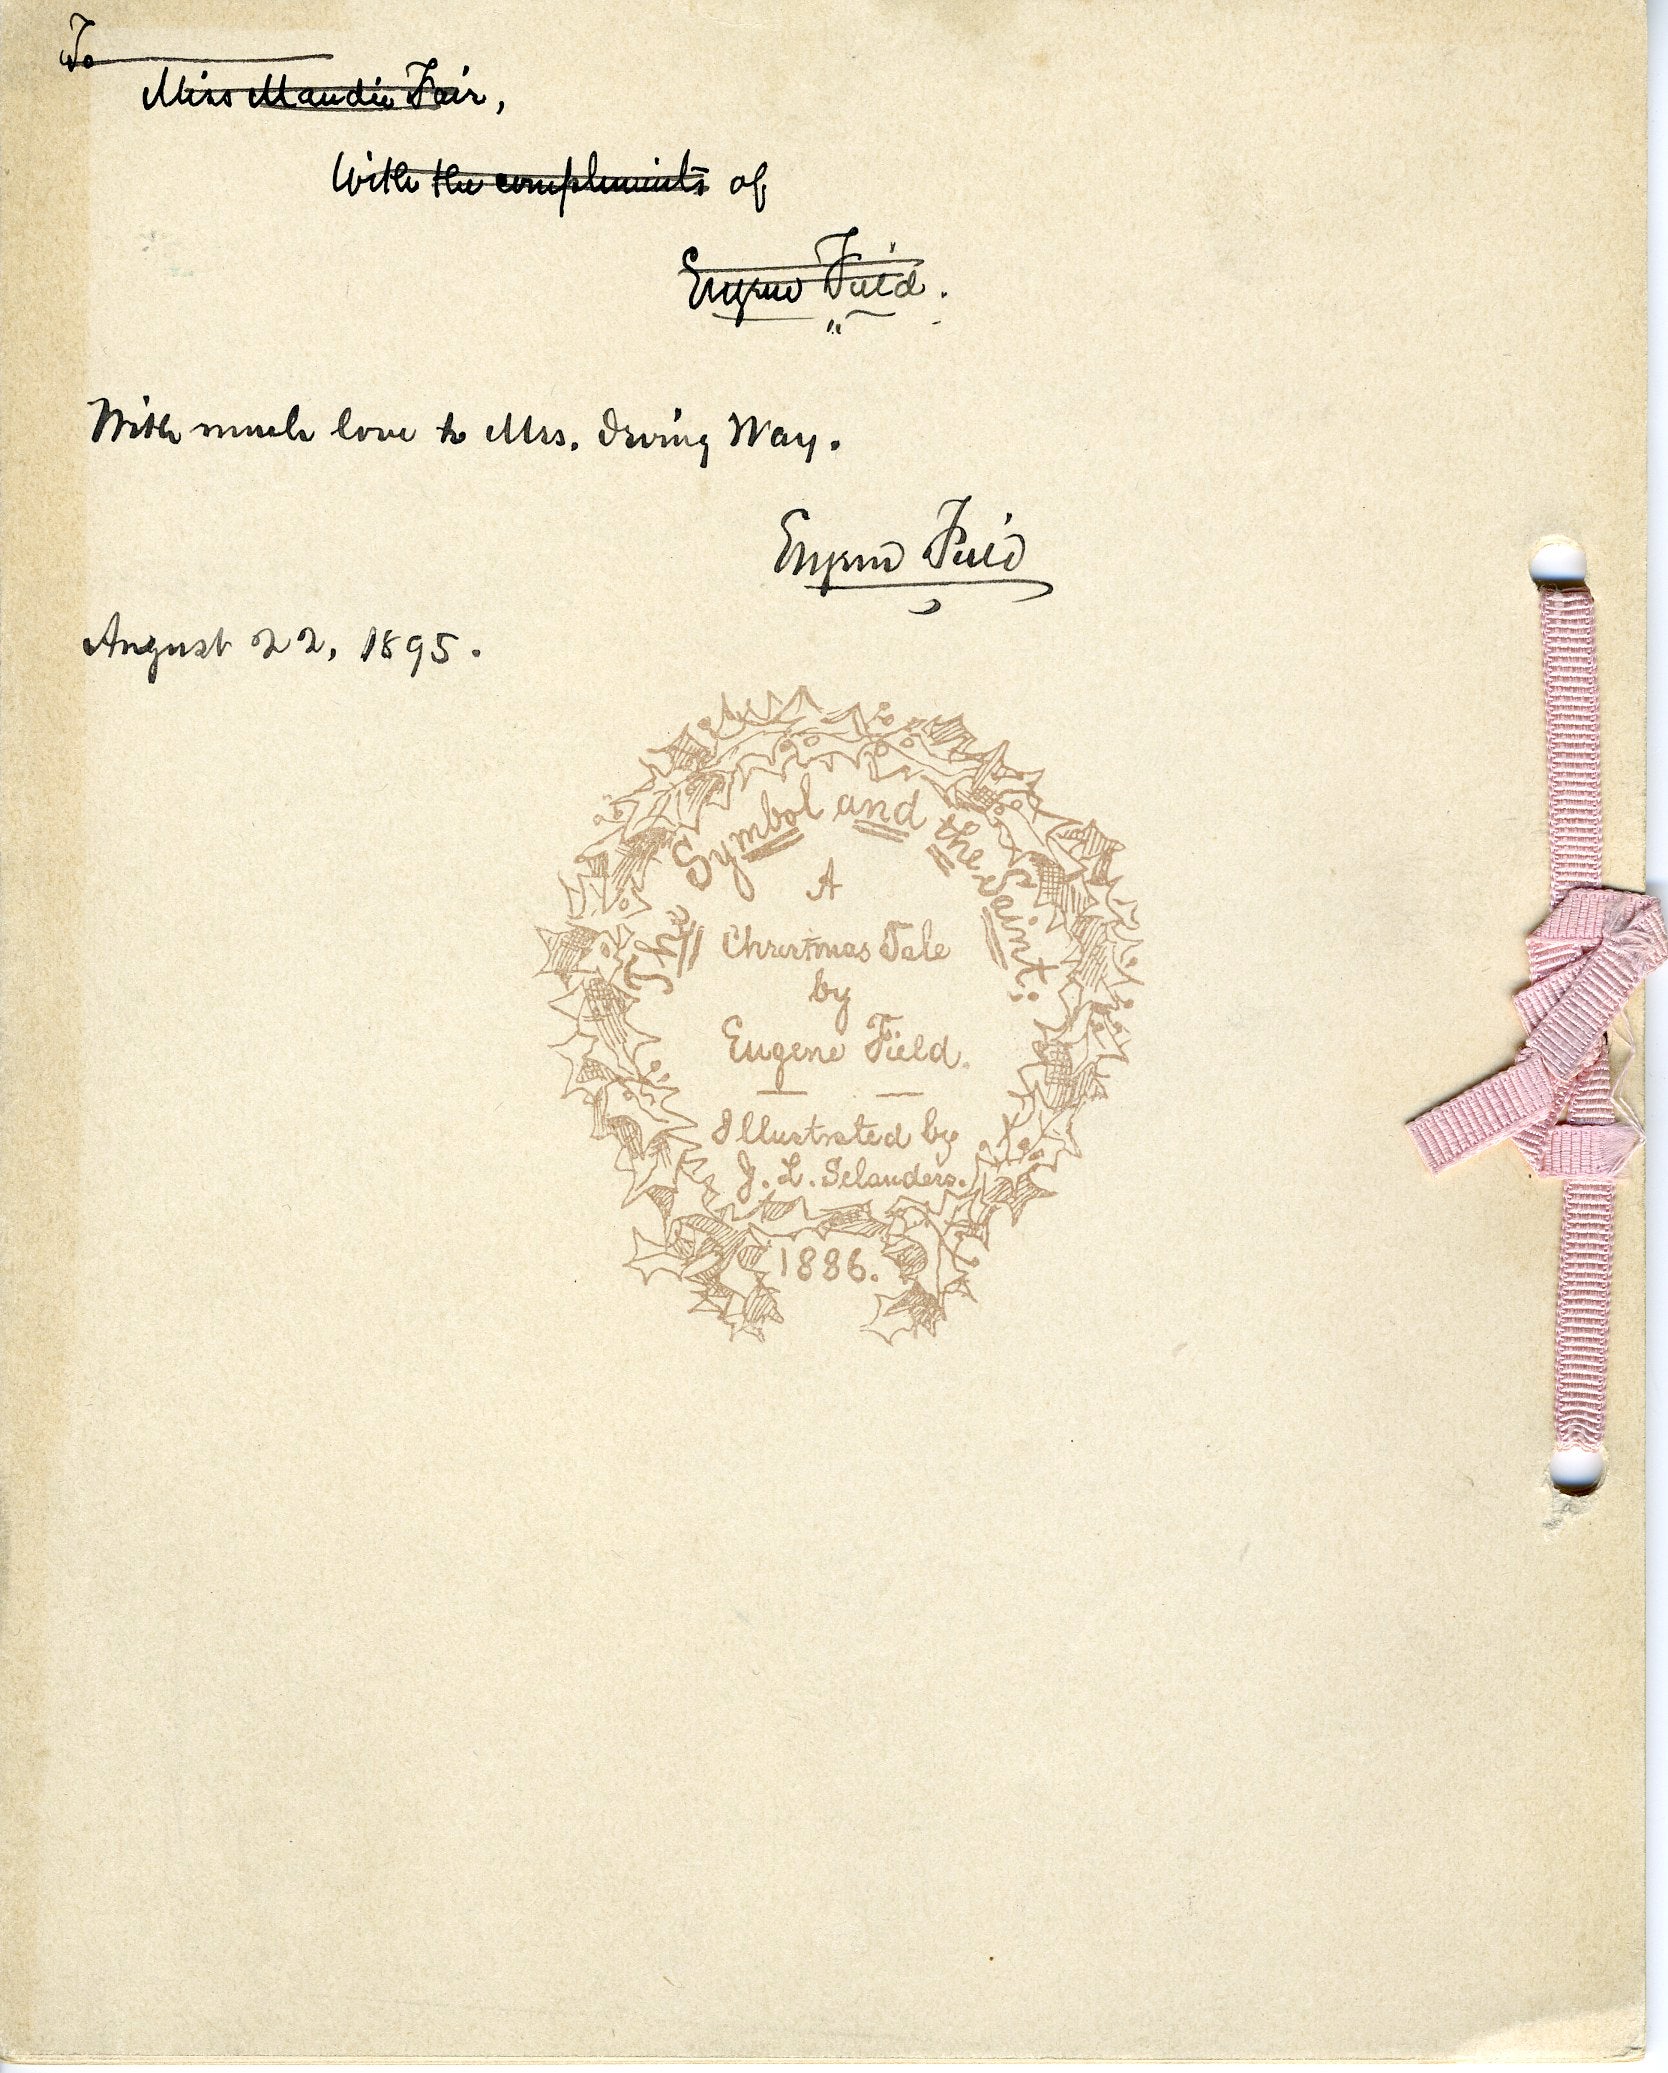 To
Miss Maudie Fair,
With the compliments of
Eugene Field.
With much love to Mrs. Irving Way.
Eugene Field
August 22, 1895.
The Symbol and the Saint:
A
Christmas Tale
by
Eugene Field.
Illustrated by
J. L. Sclanders.
1886.